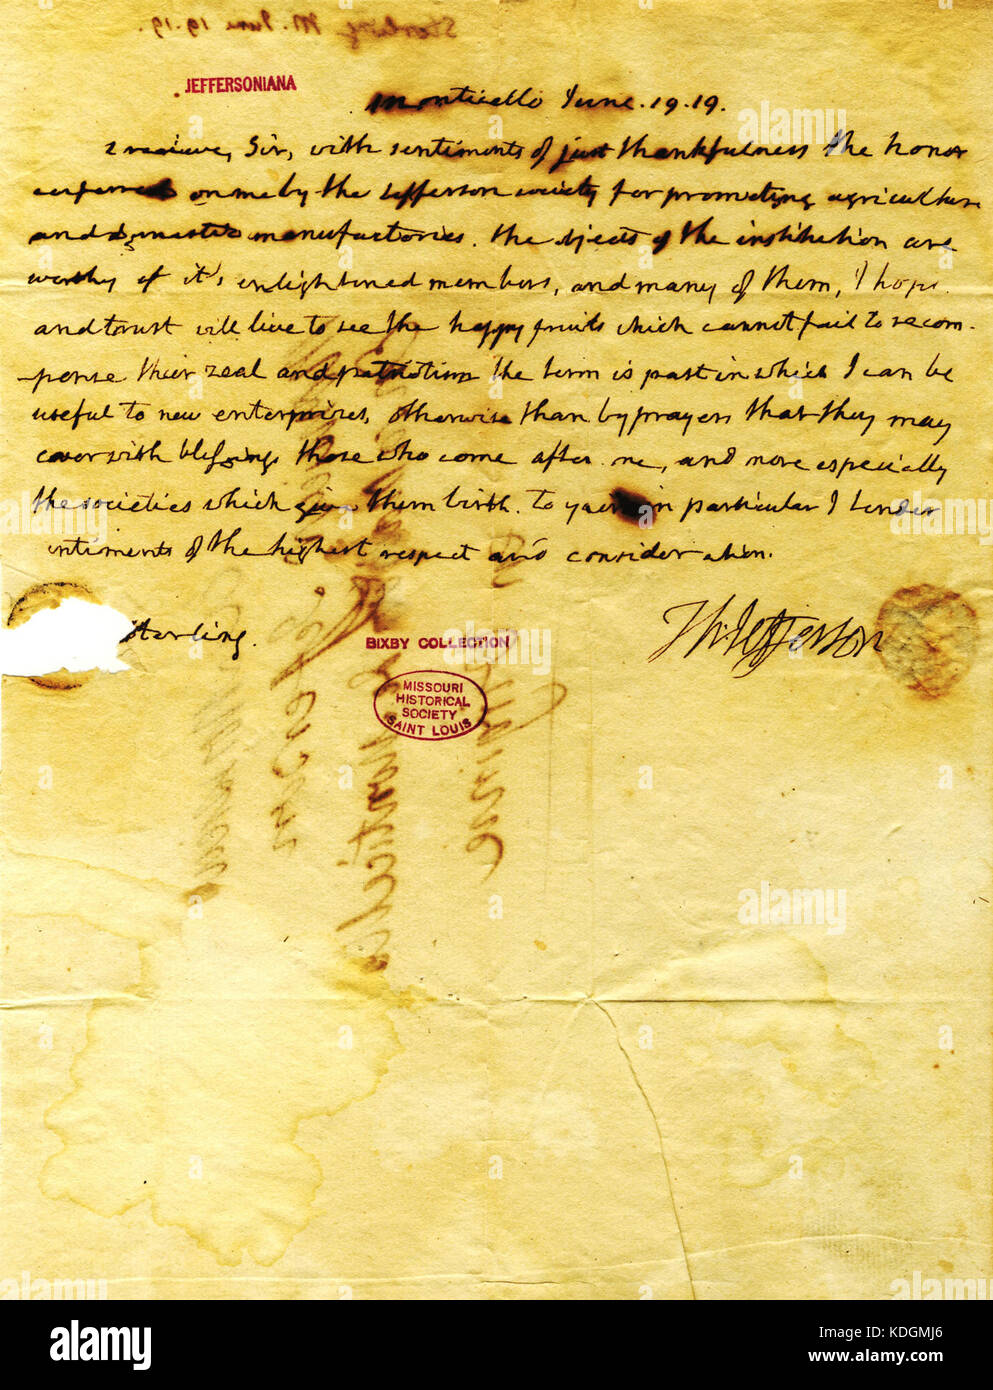 JEFFERSONIANA
Monticello June. 19. 19.
I recieve, Sir, with sentiments of just thankfulness the honor
conferred on me by the Jefferson society for promoting agriculture
and domestic manufactories. the objects of the institution are
worthy of it's enlightened members, and many of them, I hope
and trust will live to see the happy fruits which cannot fail to recom-
-pense their zeal and patriotism the term is past in which I can be
useful to new enterprizes, otherwise than by prayers that they may
cover with blessings those who come after me, and more especially
the societies which give them birth. to yourself in particular I tender
entiments of the highest respect and consideration.
Starling.
Th: Jefferson
BIXBY COLLECTION
MISSOURI
HISTORICAL
SOCIETY
SAINT LOUIS
Starling M. June 19. 19.
alamy
alamy
Image ID: KDGMJ6
www.alamy.com